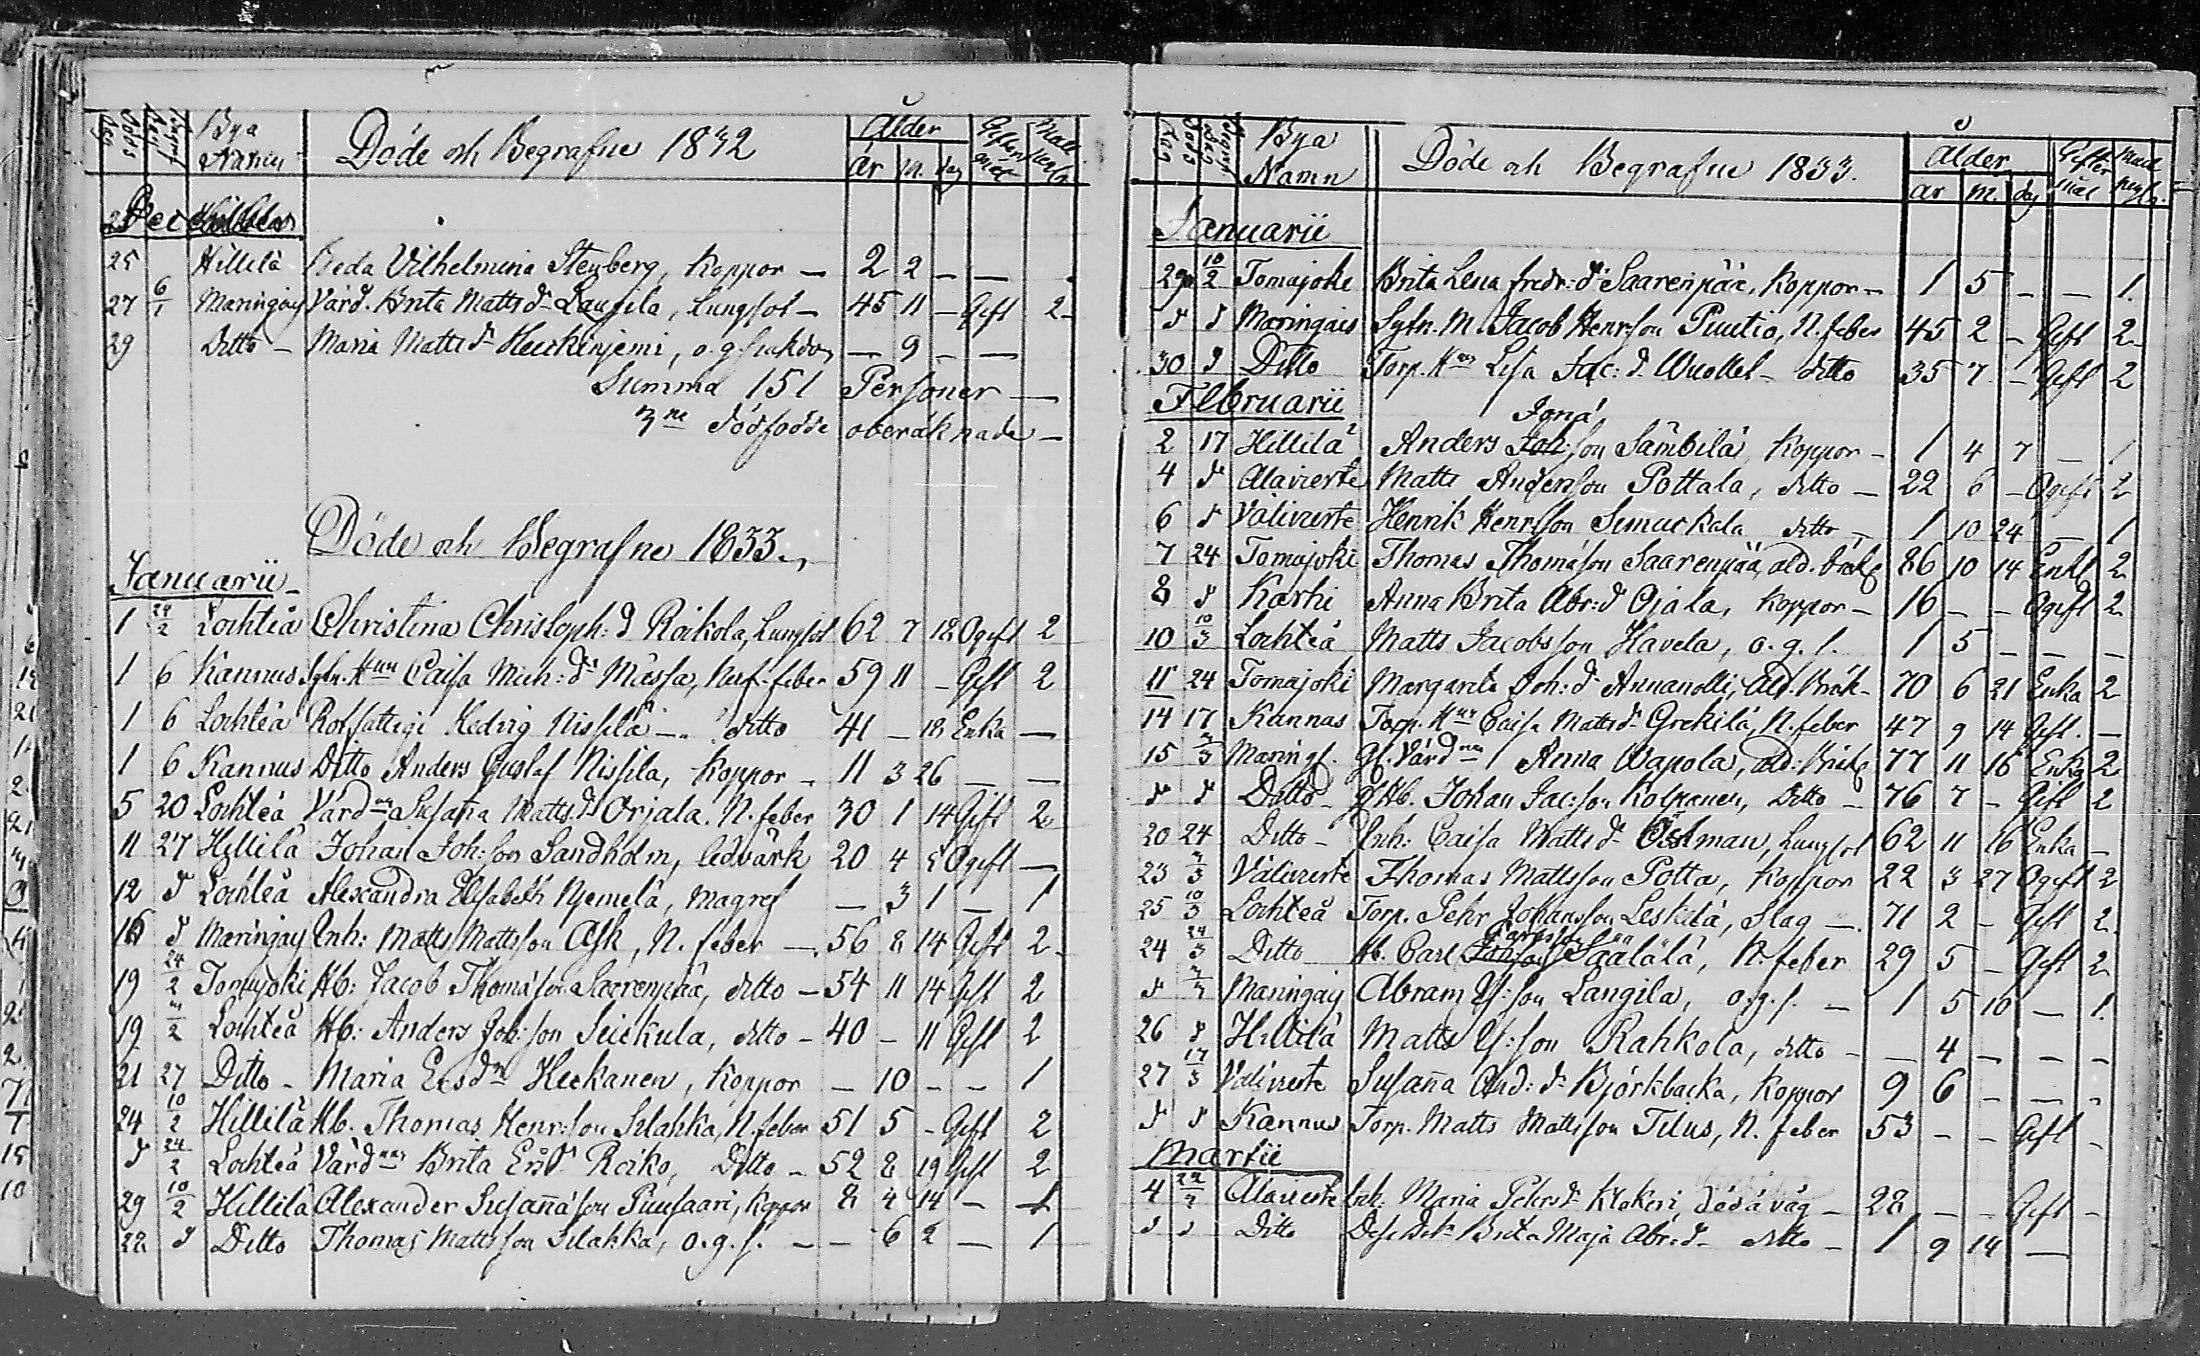 Döds Dag Begraf. dag Bya Namn Döde och Begrafne 1832 Ålder År M. dag Giftermål Mull peng.
December
25 Hillilä Greda Vilhelmina Stenberg, Koppor — 2 2 — —
27 6/1 Maringay Värd. Brita Matts d. Laugila, Lungsot — 45 11 — Gift 2
29 Ditto — Maria Matts d. Heickinjemi, o.g. — 9 — —
Summa 151 Personer —
3ne dödfödde oberäknade —
Döde och Begrafne 1833.
Januarii
1 24/2 Lochteå Christina Christoph: d Roikola, Lungsot 62 7 18 Ogift 2
1 6 Kannus Sytn. Hun Caisa Mich: dr Massa, Nerf-feber 59 11 — Gift 2
1 6 Lochteå Rotfattigi Hedvig Nissilä — ditto 41 — 18 Enka —
1 6 Kannus Ditto Anders Gustaf Nissila, Koppor — 11 3 26 — —
5 20 Lochteå Värdnn Susaña Matts. dr Orjala. N. feber 30 1 14 Gift 2
11 27 Hillilä Johan Joh: son Sandholm, ledvärk 20 4 5 Ogift —
12 d Lochteå Alexandra Elisabeth Njemelä, Magref — 3 1 — 1
16 d Maringay Inh: Matts Mattsson Ask, N. feber — 56 8 14 Gift 2
19 24/2 Tomujoki Hb: Jacob Thomasson Saarenpää, ditto — 54 11 14 Gift 2
19 3/2 Lochteå Hb: Anders Joh: son Seickula, ditto — 40 — 11 Gift 2
21 27 Ditto — Maria Ers dr Heckanen, Koppor — 10 — — 1
24 10/2 Hillilä Hb. Thomas Henr: son Silahka, N. feber 51 5 — Gift 2
d 24/2 Lochteå Värdnn Brita Ers d. Roiko, Ditto — 52 8 19 Gift 2
29 10/2 Hillilä Alexander Susañason Puusaari, Koppor 8 4 14 — 1
22 d Ditto Thomas Mattsson Silahka, o.g.s. — — 6 2 — 1
Dag Döds Begrafn. dag Bya Namn Döde och Begrafne 1833. Ålder år m. dag Giftermål Mull peng.
Januarii
29 10/2 Tomajoki Brita Lena Fredr: d. Saarenpää, Koppor — 1 5 — — 1.
d d Maringais Sytn. M. Jacob Henrsson Puutio, N. feber 45 2 — Gift 2
30 d Ditto Torp. Hun Lisa Jac: d. Wuollet — ditto 35 7 — Gift 2
Februarii
2 17 Hillilä Anders Joh: Igna son Sämbilä, Koppor — 1 4 7 — 1
4 d Alavieste Matts Andersson Pottala, ditto — 22 6 — Ogift 2
6 d Välivieste Henrik Henrsson Simuckala ditto — 1 10 24 — 1
7 24 Tomajoki Thomas Thomasson Saarenpää, åld. bräckl. 86 10 14 Enkl 2
8 d Karhi Anna Brita Abr: d Ojala, Koppor — 16 — — Ogift 2
10 10/3 Lochteå Matts Jacobsson Havela, o. g. s. 1 5 — — —
11 24 Tomajoki Margareta Joh: d. Annanolli, Åld. Bräk — 70 6 21 Enka 2
14 17 Kannus Torp. Hun Caisa Matts d. Grekilä, N. feber 47 9 14 Gift. —
15 3/3 Marings. Gl. Värdnn Anna Wapola, åld: bräckl 77 11 16 Enka 2
d d Ditto — G Hb. Johan Jac: son Kolpanen, Ditto — 76 7 — Gift 2
20 24 Ditto — Inh: Caisa Matts d. Östman, Lungsot 62 11 16 Enka —
23 3/3 Välivieste Thomas Mattsson Potta, Koppor 22 3 27 Ogift 2
25 10/3 Lochteå Torp. Pehr Johansson Leskelä, Slag — 71 2 — Gift 2
24 24/3 Ditto Hb. Carl Johsson Carlsson Säälälä, N. feber 29 5 — Gift 2
d Maringay Abram son Langila, o. g. s. — 1 5 10 — 1.
26 d Hillilä Matts son Rahkola, ditto — — 4 — — —
27 17/3 Välivieste Susaña And: d. Björkbacka, Koppor 9 6 — — —
d d Kannus Torp. Matts Mattsson Tilus, N. feber 53 — — Gift —
Martii
4 Alavieste Inh. Maria Peters d. Klokeri, död å väg — 28 — — Gift —
d d Ditto Dess Dotr Brita Maja Abr. d. ditto — 1 9 14 —